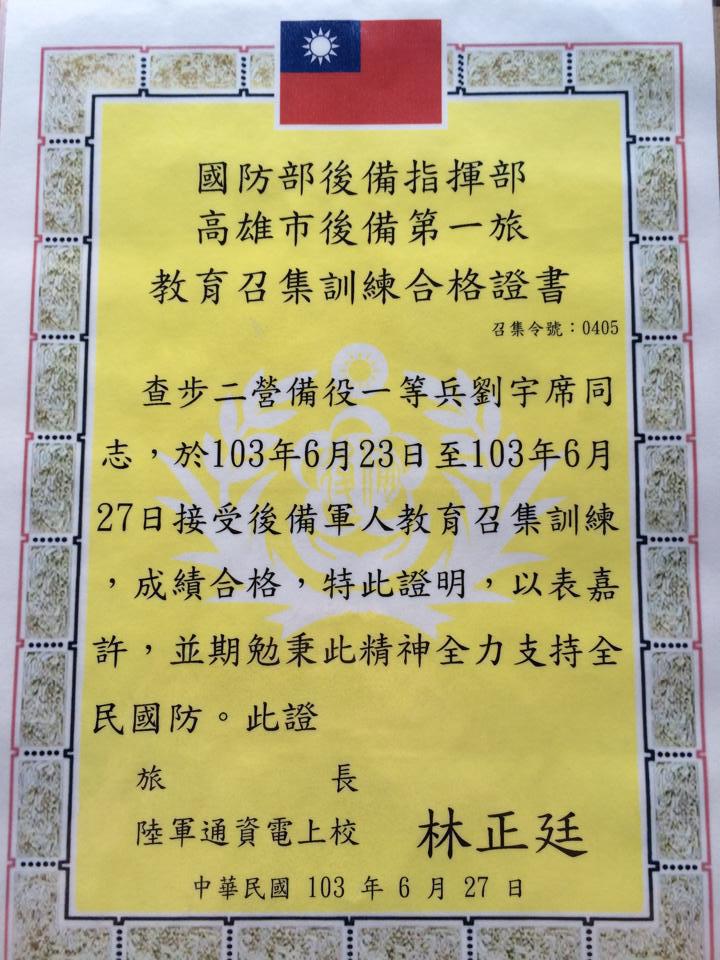 國防部後備指揮部
高雄市後備第一旅
教育召集訓練合格證書
召集令號：0405
查步二營備役一等兵劉宇席同
志，於103年6月23日至103年6月
27日接受後備軍人教育召集訓練
，成績合格，特此證明，以表嘉
許，並期勉秉此精神全力支持全
民國防。此證
旅長
陸軍通資電上校 林正廷
中華民國 103 年 6 月 27 日